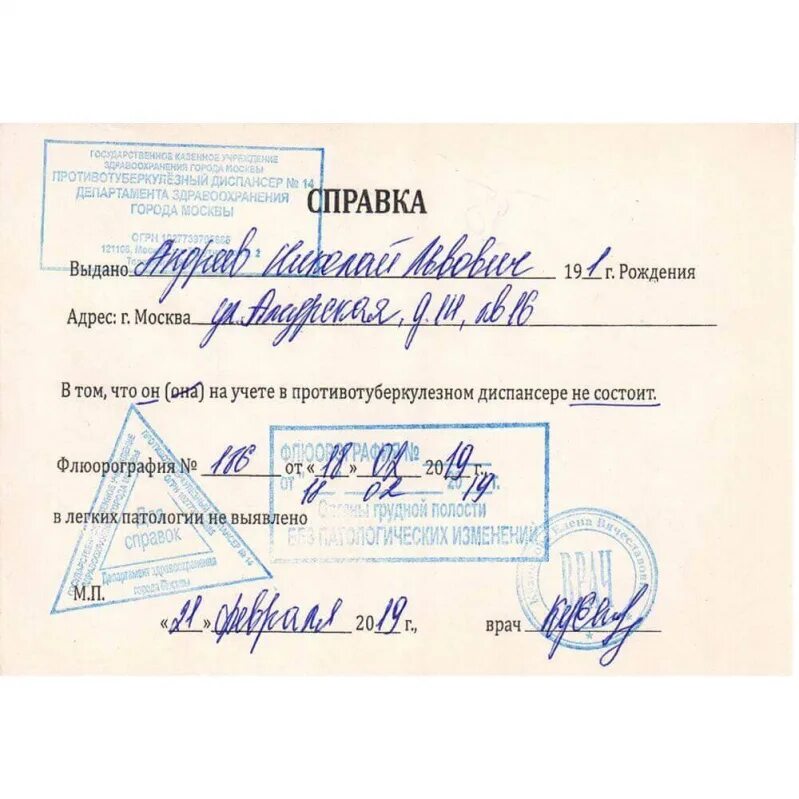 ГОСУДАРСТВЕННОЕ КАЗЕННОЕ УЧРЕЖДЕНИЕ
ЗДРАВООХРАНЕНИЯ ГОРОДА МОСКВЫ
ПРОТИВОТУБЕРКУЛЁЗНЫЙ ДИСПАНСЕР № 14
ДЕПАРТАМЕНТА ЗДРАВООХРАНЕНИЯ
ГОРОДА МОСКВЫ
ОГРН
СПРАВКА
Выдано Андреев Николай Львович 191 г. Рождения
Адрес: г. Москва ул. Амурская, д. 14, кв 16
В том, что он (она) на учете в противотуберкулезном диспансере не состоит.
ФЛЮОРОГРАФИЯ №
Флюорография № 186 от «18» 02 2019 г.,
от 18 02 2019 г.
Органы грудной полости
в легких патологии не выявлено
БЕЗ ПАТОЛОГИЧЕСКИХ ИЗМЕНЕНИЙ
Для
справок
Департамент здравоохранения
города Москвы
Вячеславовна
ВРАЧ
М.П.
«21» февраля 2019 г., врач